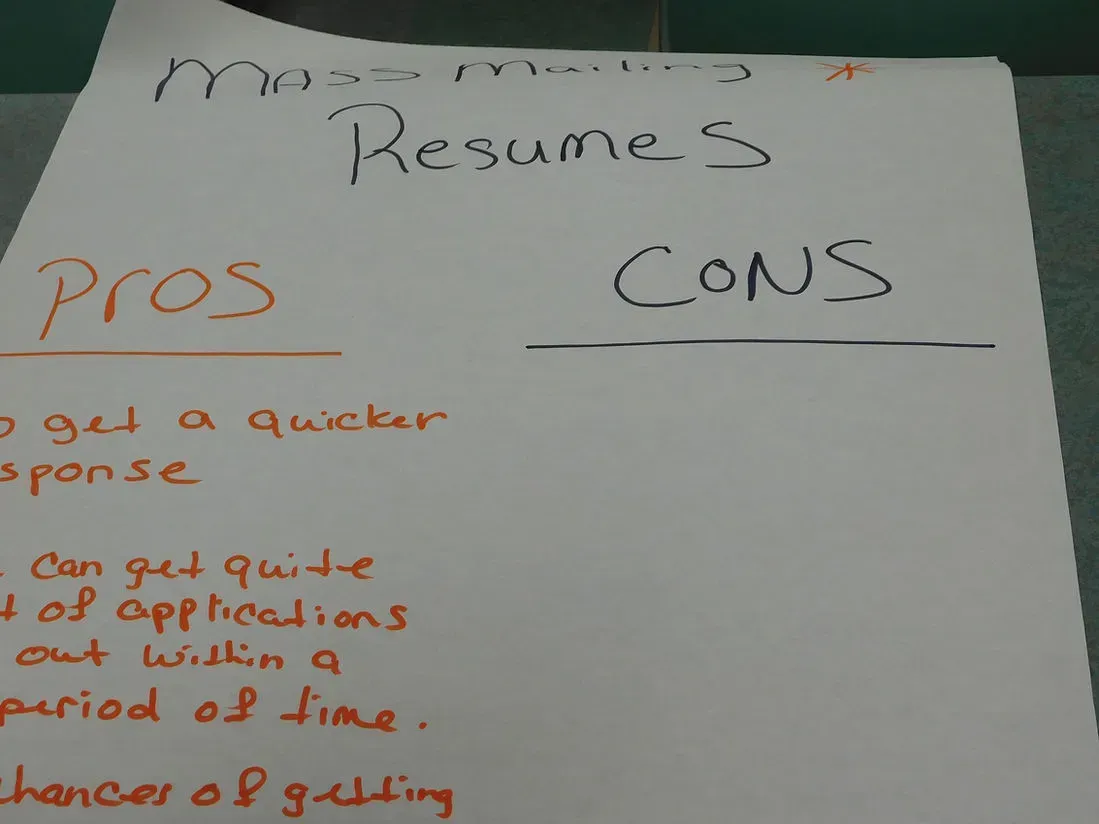 Mass Mailing *
Resumes
Pros
Cons
get a quicker
sponse
can get quite
of applications
out within a
period of time.
chances of getting